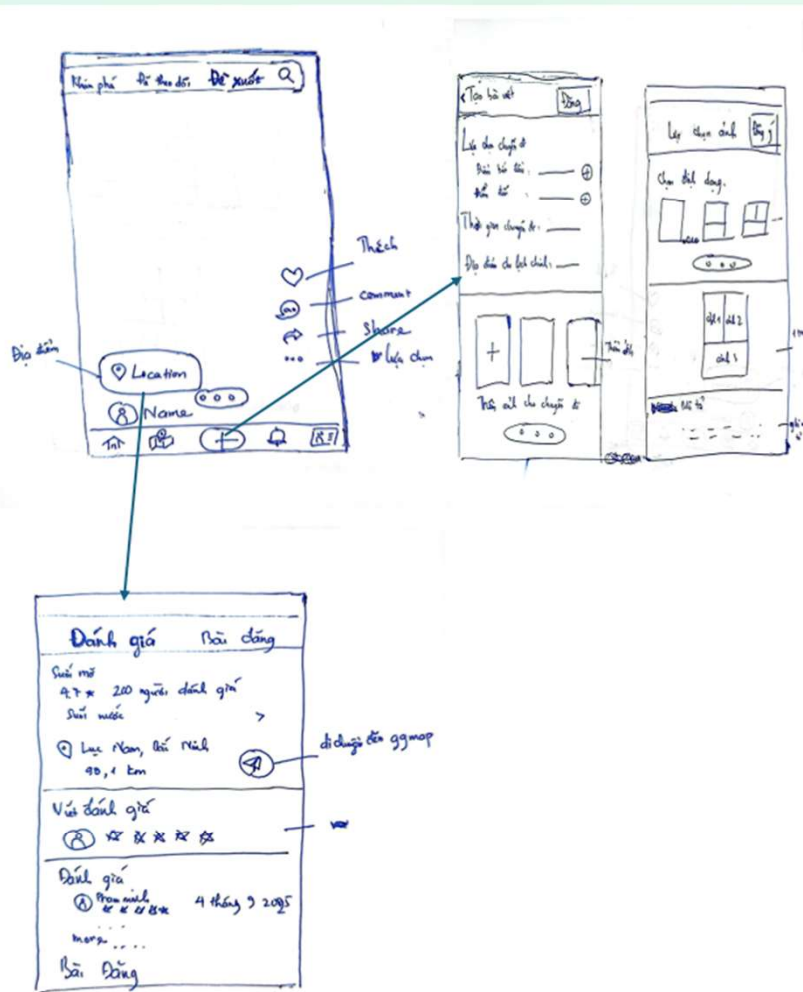 Khám phá Đã theo dõi Đề xuất
Thích
comment
Share
lựa chọn
Địa điểm
Location
Name
< Tạo bài viết Đăng
Lựa chọn chuyến đi
Điểm bắt đầu:
Điểm đến:
Thời gian chuyến đi:
Địa điểm cho lịch trình:
Thêm ảnh
Thêm ảnh cho chuyến đi
Lựa chọn ảnh Đồng ý
Chọn định dạng.
ảnh 1 ảnh 2
ảnh 3
Mô tả
Đánh giá Bài đăng
Suối mỡ
4.7 200 người đánh giá
Suối nước >
Lục Nam, Bắc Ninh
90,1 km
di chuyển đến ggmap
Viết đánh giá
Đánh giá
Phạm minh
4 tháng 9 2025
more....
Bài Đăng